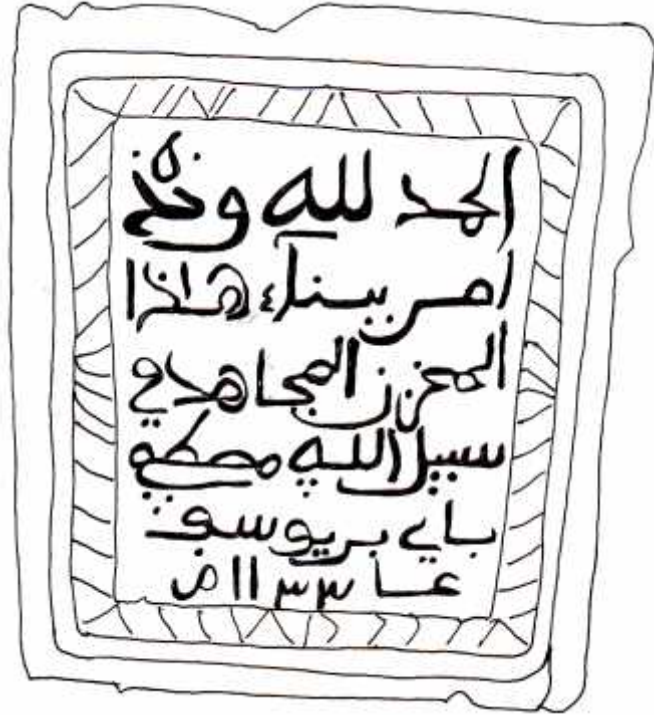 الحمد لله وحده
امر ببناء هاذا
المخزن المجاهد في
سبيل الله مصطفى
باي بن يوسف
عا ١١٣٣ م